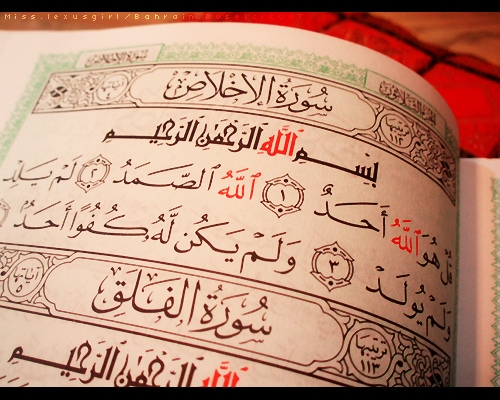 Miss.lexusgirl/Bahrain
سُورَةُ الإِخْلَاصِ
ترتيبها ١١٢
بِسْمِ ٱللَّهِ ٱلرَّحْمَٰنِ ٱلرَّحِيمِ
قُلْ هُوَ ٱللَّهُ أَحَدٌ ١ ٱللَّهُ ٱلصَّمَدُ ٢ لَمْ يَلِدْ
وَلَمْ يُولَدْ ٣ وَلَمْ يَكُن لَّهُۥ كُفُوًا أَحَدٌ
سُورَةُ الفَلَقِ
ترتيبها ١١٣
آياتها ٥
بِسْمِ ٱللَّهِ ٱلرَّحْمَٰنِ ٱلرَّحِيمِ